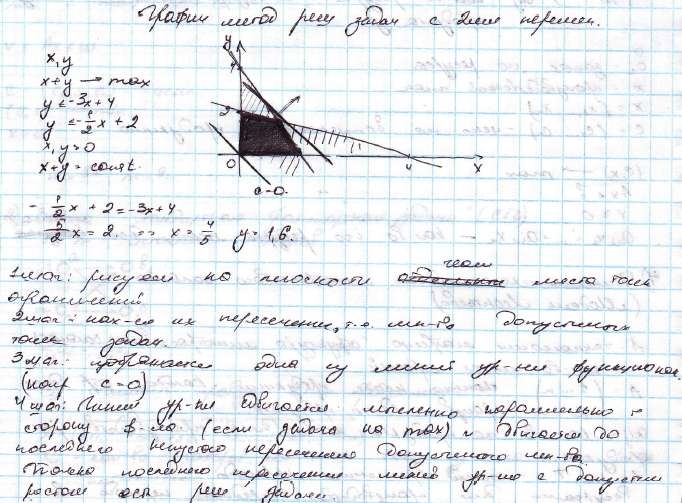 Графич метод реш задач с 2мя перемен.
x, y
x+y → max
y ≤ -3x+4
y ≤ -1/2x + 2
x, y ≥ 0
x+y = const.
y
4
2
0
4
x
c=0.
- 1/2x + 2 = -3x+4
5/2x = 2. => x = 4/5 y = 1,6.
1 шаг: рисуем на плоскости места точек
ограничений.
2 шаг: нах-ся их пересечение, т.е. мн-во допустимых
точек задач.
3 шаг: изображается одна из линий ур-ня функционал.
(напр c=0)
4 шаг: Линия ур-ня двигается мысленно параллельно
сторону ф-ла (если задача на max) и двигается до
последнего непустого пересечения допустимого мн-ва.
последнего пересечения линий ур-ня с допустим
есть реш задачи.